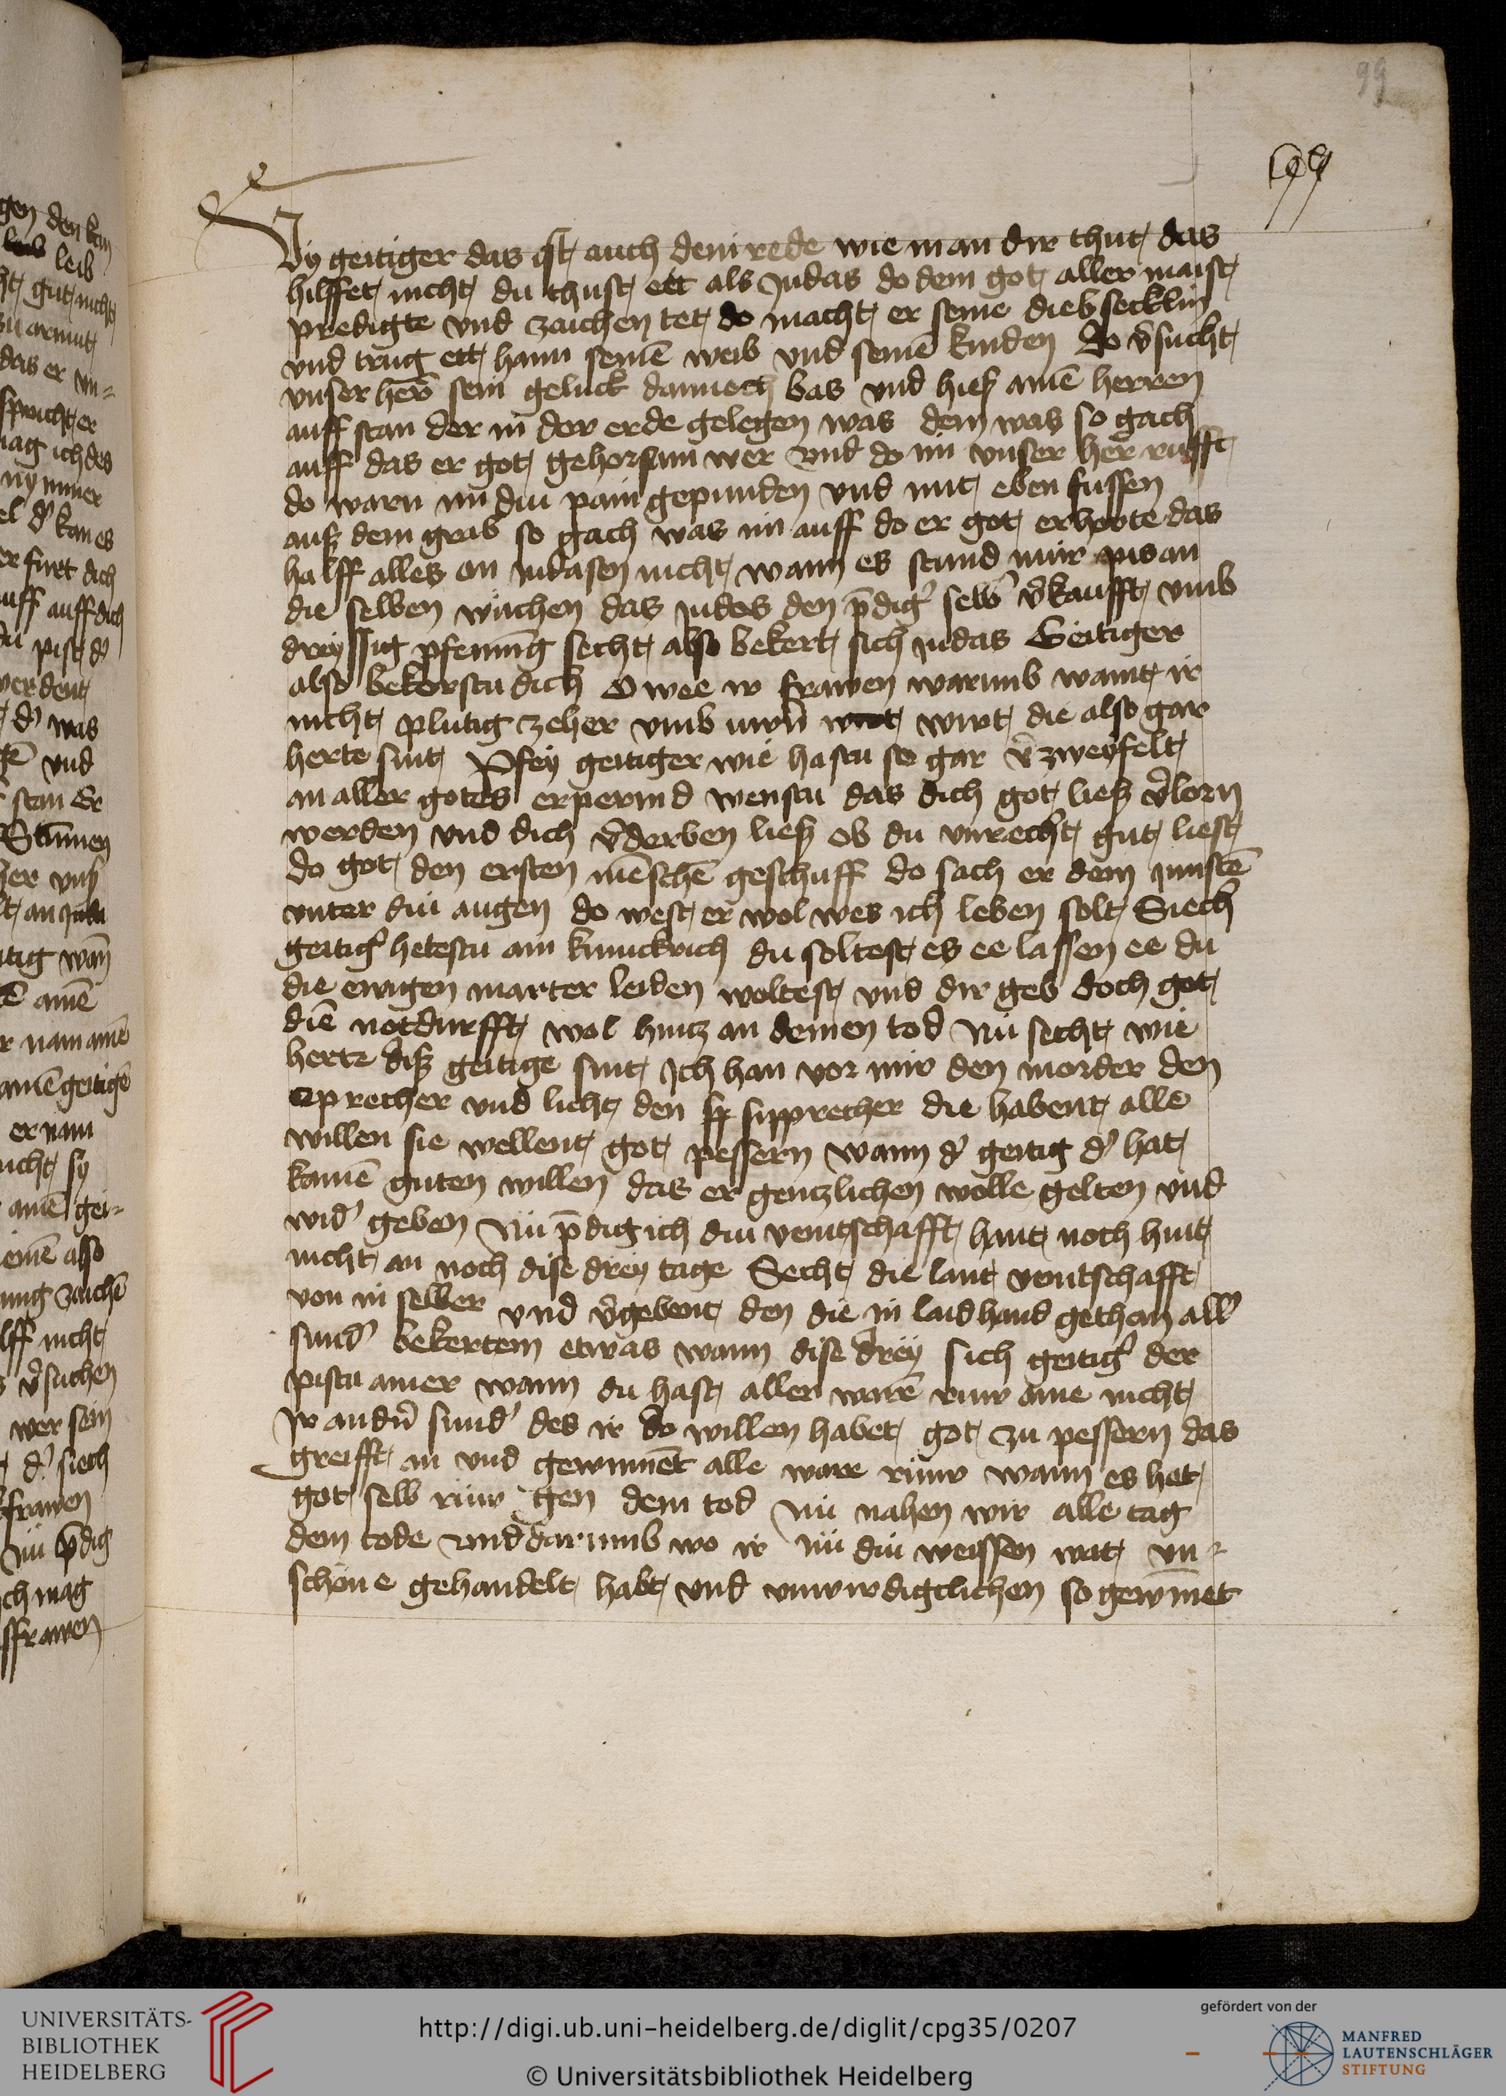 99
199
Vy geitiger das ist auch dein rede wie man dir thut das
hilffet nicht du thust ett als Judas do dem got aller maist
predigte vnd zaichen tet do macht er seine dieb secklin
vnd trug ett haim seinē weib vnd seinē kinden Do v̄sucht
vnser her̄ sein geluck dannoch bas vnd hieß ainē herren
auff stan der in der erde gelegen was dem was so gach
auff das er got gehorsam wer vnd do im vnser her̄ rufft
do warn im diu pain gepunden vnd mit eben fussen
auß dem grab so gach was im auff do er got erhorte das
halff alles an Judasen nicht wann es stund nur pis an
die selben wuchen das judas den p̄dig' selb' v̄kaufft vmb
dreyssig pfening secht also bekert sich judas Geitiger
also bekerstu dich O wee ir frawen warumb waint ir
nicht plutig zeher vmb iwrn̄ wirt die also gar
herte sint Pfey geitiger wie hastu so gar v̄zweyfelt
an aller gotes erpermd wenstu das dich got ließ v̄lorn
werden vnd dich v̄derben ließ ob du vnrecht gut liest
do got den ersten mēschē geschuff do sach er dem junstē
vnter diu augen do west er wol wes ich leben solt Siech
geitig' hetestu ain kunickrich du soltest es ee lassen ee du
die ewigen marter leiden woltest vnd dir geb doch got
diē notdurfft wol huntz an deinen tod Nu secht wie
herte diß geitige sint Ich han vor mir den morder den
precher vnd licht den sp sipprecher die habent alle
willen sie wellent got pessern wann d' geitig d' hat
kainē guten willen das er gentzlichen wolle gelten vnd
wid' geben Nu p̄dig ich diu veintschafft haut noch hiut
nicht an noch dise drey tage Secht die lant veintschafft
von in selber vnd v̄gebent den die in laid hand gethan all'
sund' bekertem etwas wann dise drey sich geitig' der
pistu ainer wann du hast aller warē riuw aine nicht
Ir andn̄ sund' des ir do willen habet got zu pessern das
greifft an vnd gewinnēt alle ware riuw wann es het
got selb riuw gen dem tod Nu nahen wir alle tag
dem tode vnd darumb wo ir nu diu weissen wat vn-
schone gehandelt habt vnd vnwirdigclichen so gewinnet
UNIVERSITÄTS-
BIBLIOTHEK
HEIDELBERG
http://digi.ub.uni-heidelberg.de/diglit/cpg35/0207
© Universitätsbibliothek Heidelberg
gefördert von der
MANFRED
LAUTENSCHLÄGER
STIFTUNG